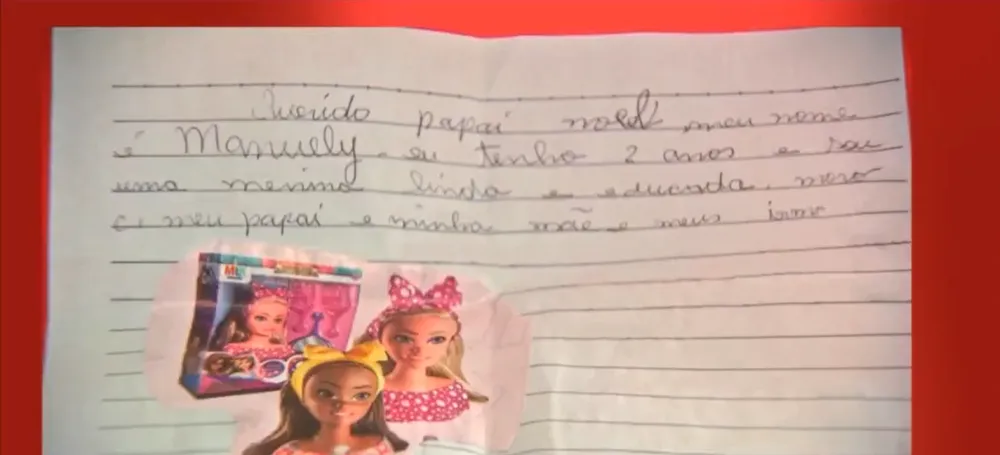 Querido papai noel meu nome
é Manuely. eu tenho 2 anos e sou
uma menina linda e educada. moro
c, meu papai e minha mãe e meus irmo
ML